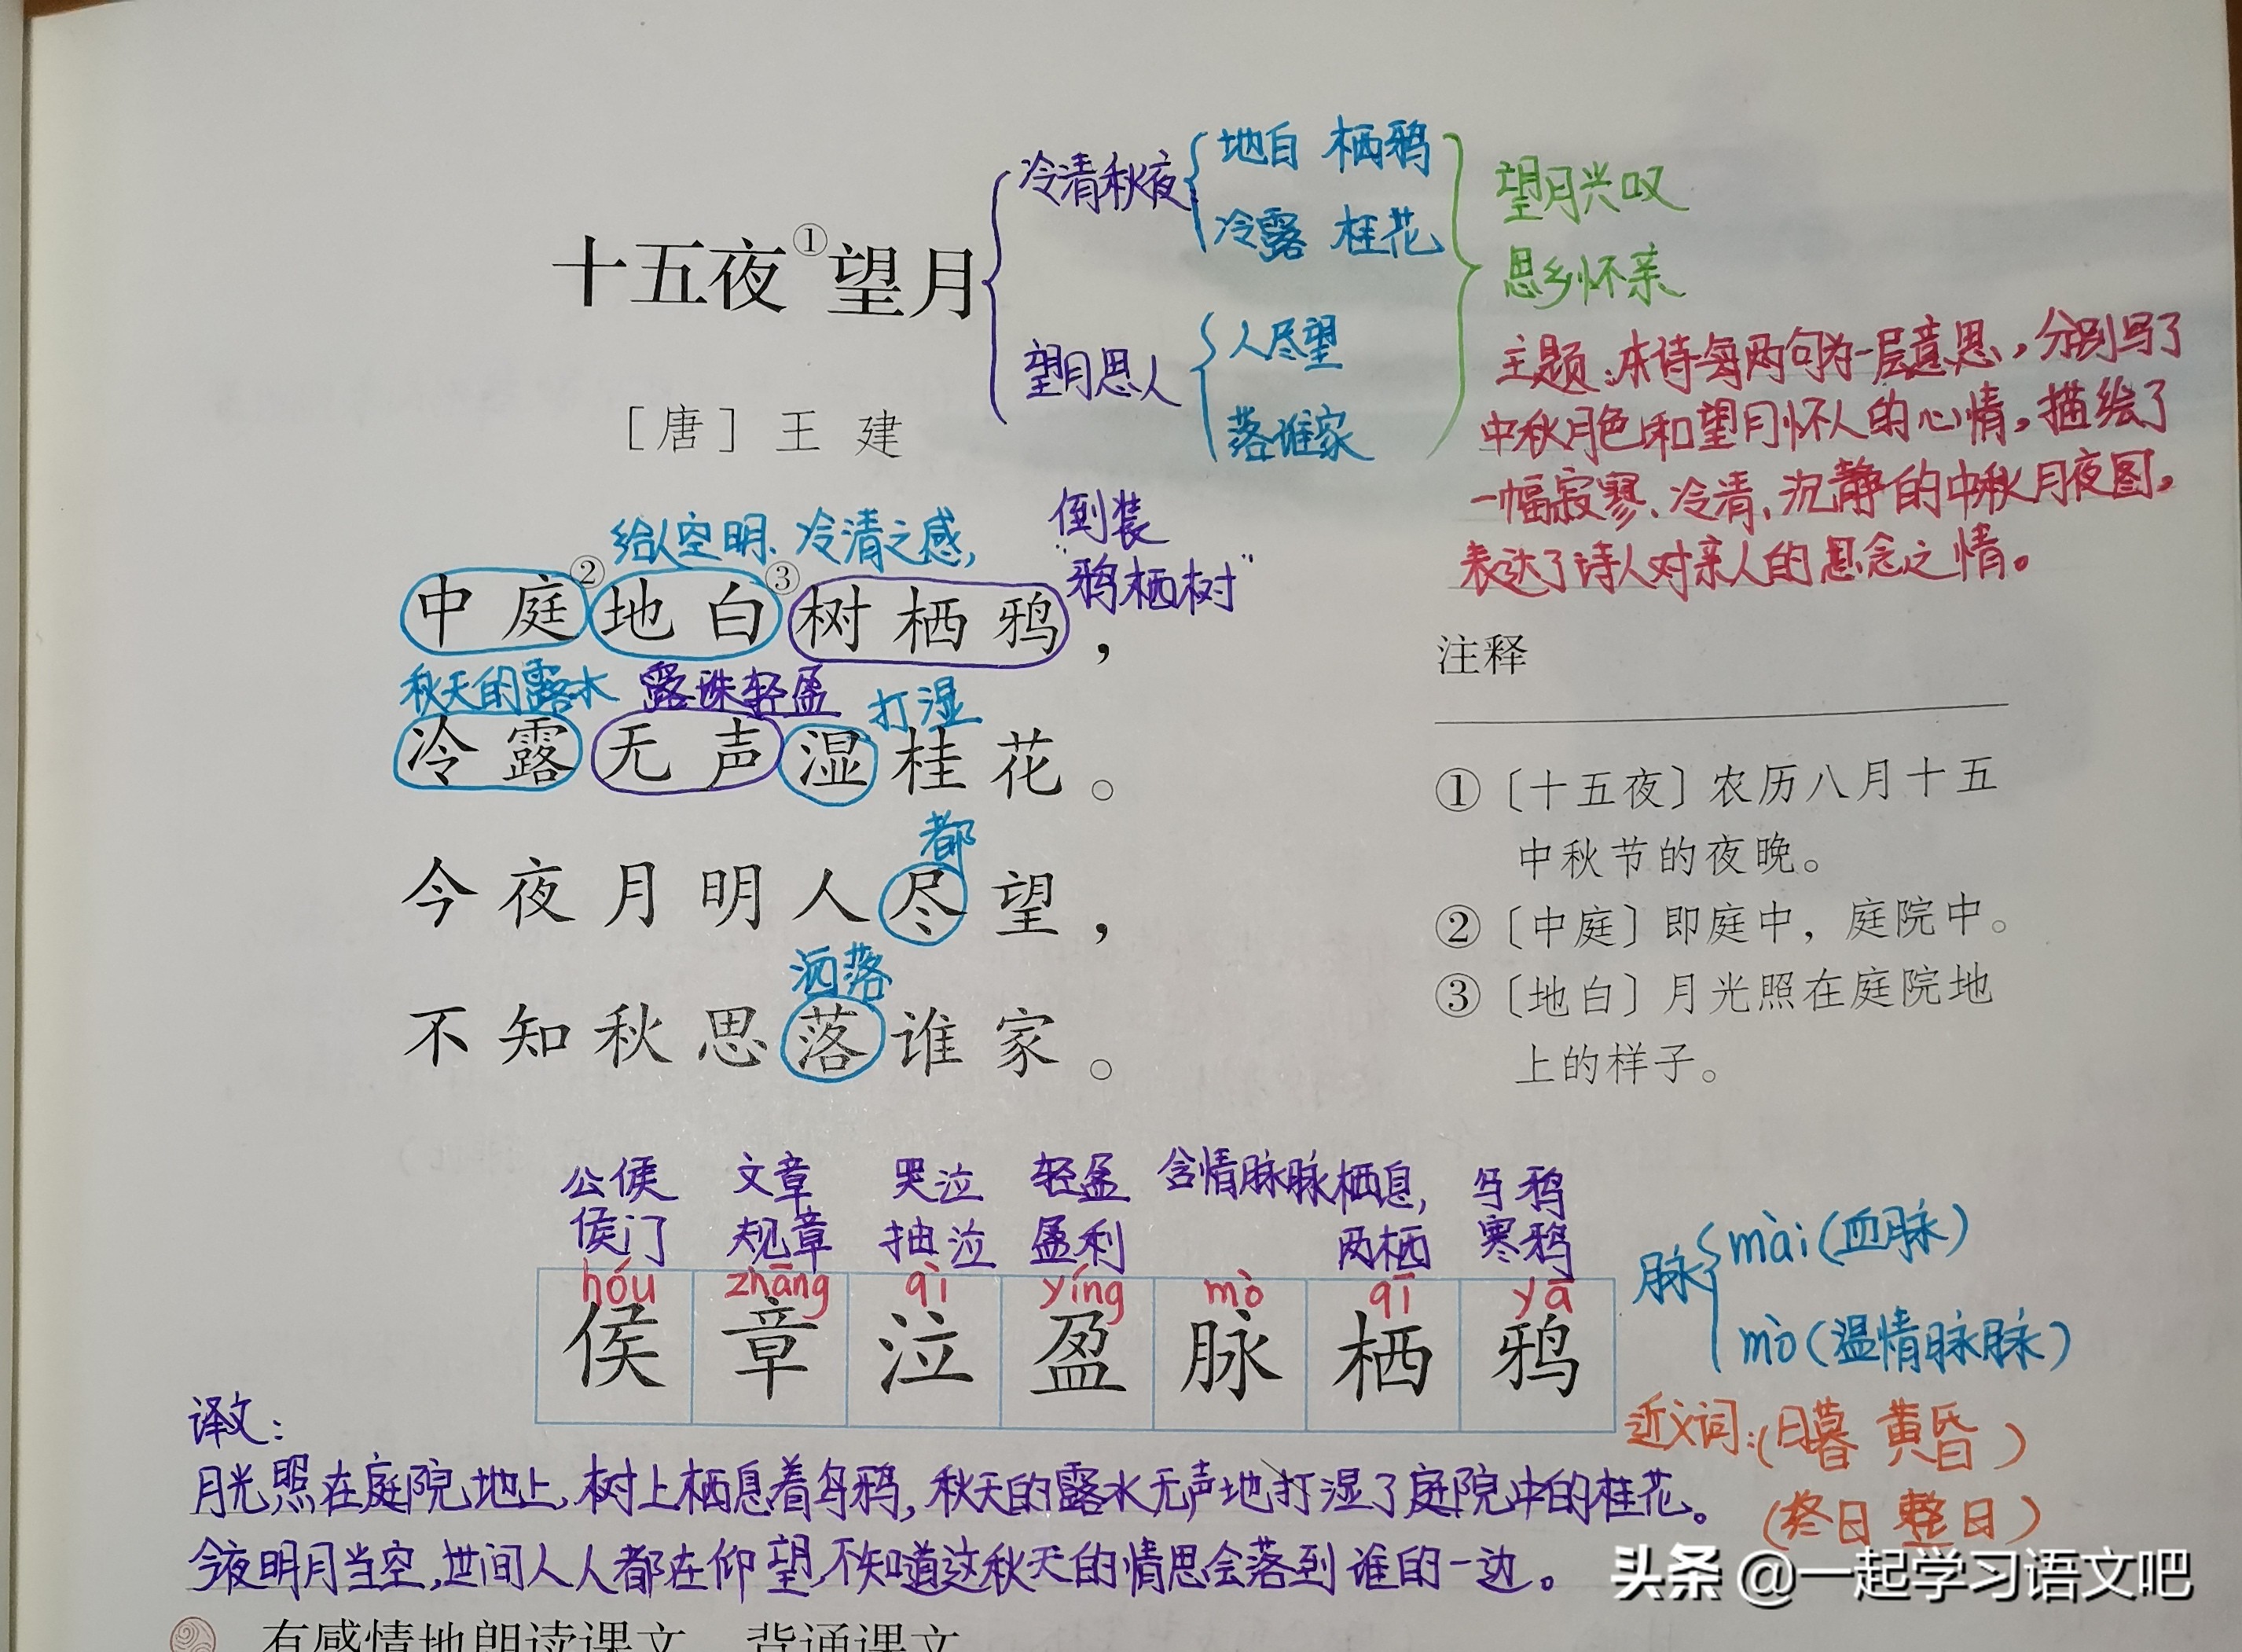 十五夜①望月
冷清秋夜
地白 栖鸦
冷露 桂花
望月思人
人尽望
落谁家
望月兴叹
思乡怀亲
主题:本诗每两句为一层意思,分别写了
中秋月色和望月怀人的心情,描绘了
一幅寂寥、冷清、沉静的中秋月夜图,
表达了诗人对亲人的思念之情。
[唐] 王 建
给人空明、冷清之感,
倒装
"鸦栖树"
中庭②地白③树栖鸦,
秋天的露水 露珠轻盈 打湿
冷露无声湿桂花。
都
今夜月明人尽望,
洒落
不知秋思落谁家。
注释
①〔十五夜〕农历八月十五
中秋节的夜晚。
②〔中庭〕即庭中,庭院中。
③〔地白〕月光照在庭院地
上的样子。
公侯 文章 哭泣 轻盈 含情脉脉 栖息, 乌鸦
侯门 规章 抽泣 盈利 两栖 寒鸦
hóu zhāng qì yíng mò qī yā
侯 章 泣 盈 脉 栖 鸦
脉
mài(血脉)
mò(温情脉脉)
近义词:(日暮 黄昏)
(终日 整日)
译文:
月光照在庭院地上,树上栖息着乌鸦,秋天的露水无声地打湿了庭院中的桂花。
今夜明月当空,世间人人都在仰望,不知道这秋天的情思会落到谁的一边。
有感情地朗读课文。背诵课文。
头条 @一起学习语文吧